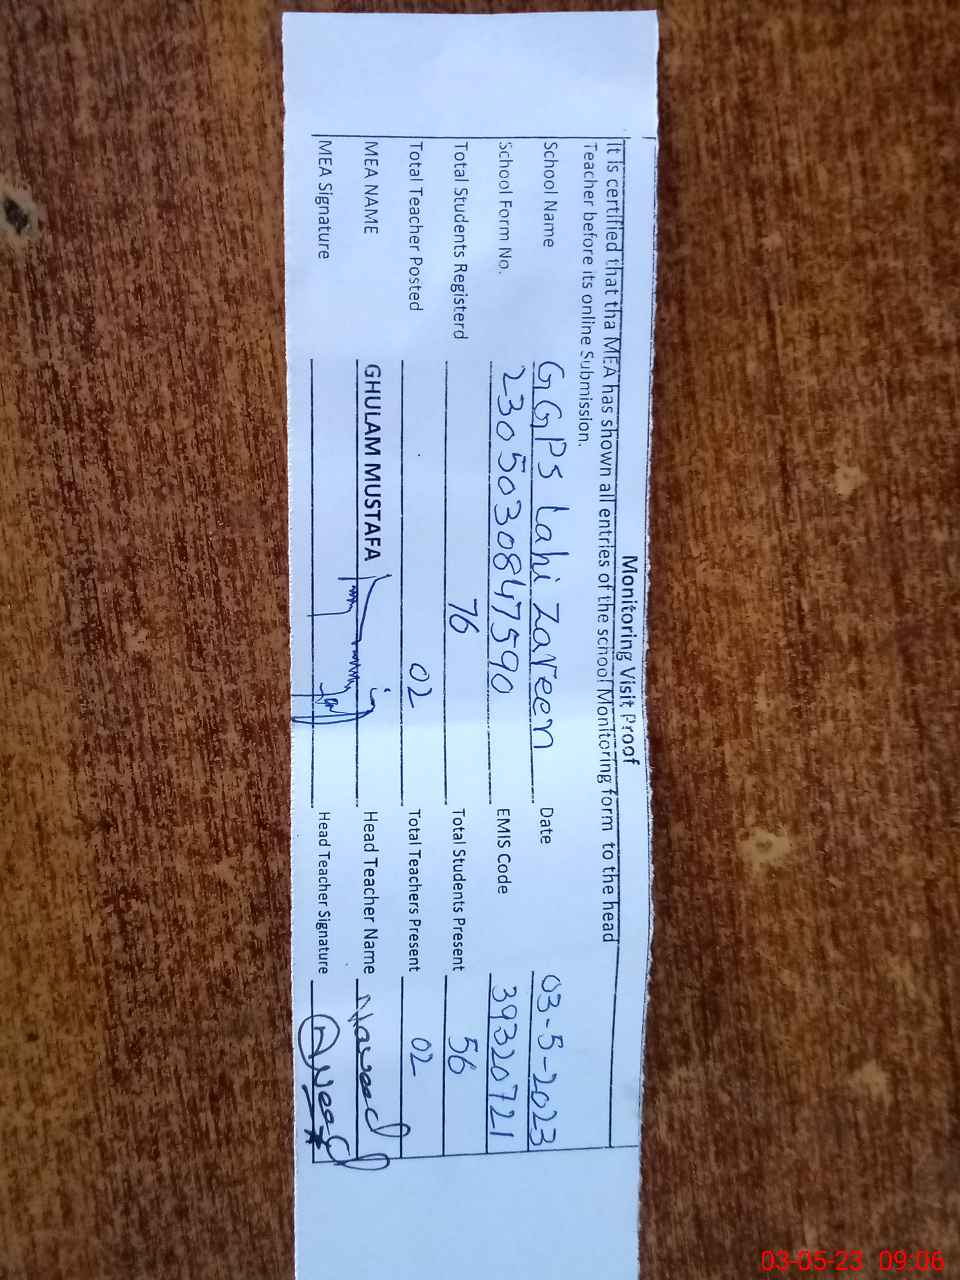 Monitoring Visit Proof
It is certified that tha MEA has shown all entries of the school Monitoring form to the head
Teacher before its online Submission.
School Name GGPS Lahi Zareen Date 03-5-2023
School Form No. 2305030847590 EMIS Code 39320721
Total Students Registerd 76 Total Students Present 56
Total Teacher Posted 02 Total Teachers Present 02
MEA NAME GHULAM MUSTAFA Head Teacher Name Naveed
MEA Signature Head Teacher Signature
03-05-23 09:06